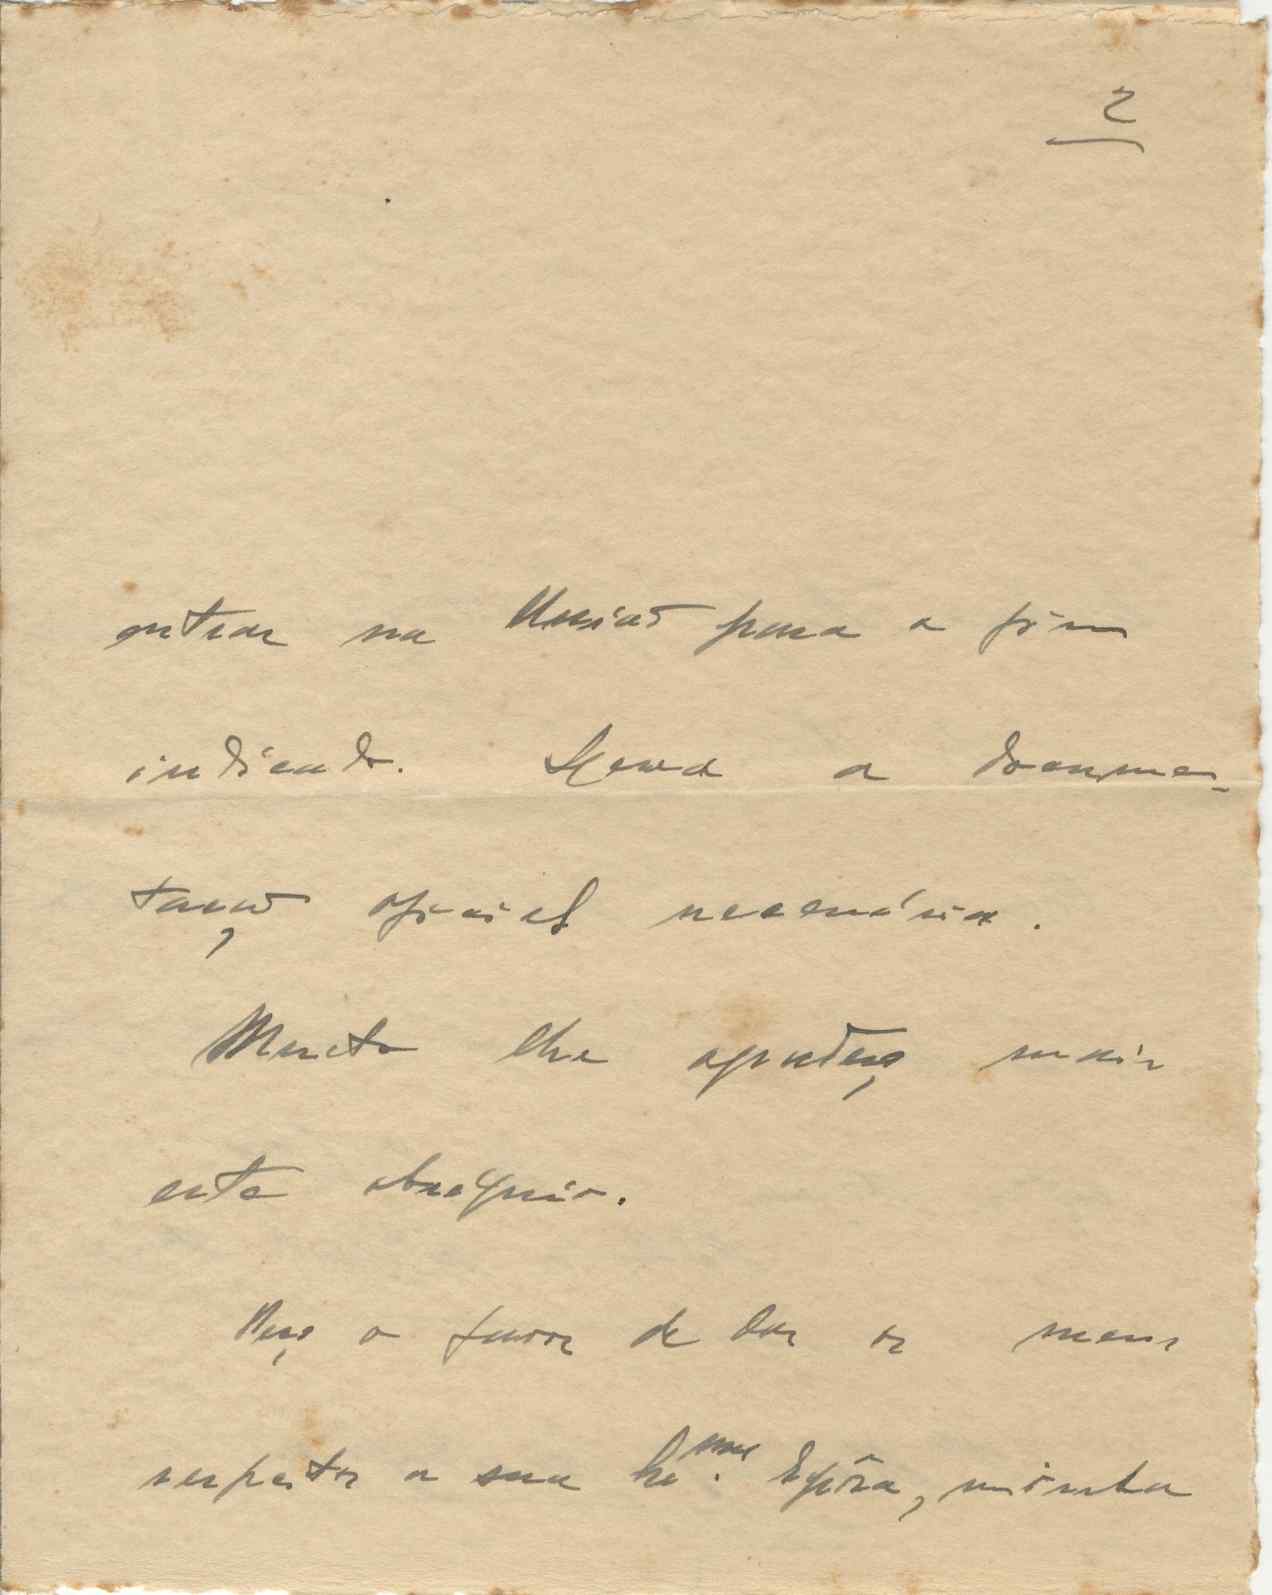 2
entrar na União para o fim
indicado. Levava a documen-
tação oficial necessária.
Muito lhe agradeço mais
este obséquio.
Peço o favor de dar os meus
respeitos a sua Espôsa, minha